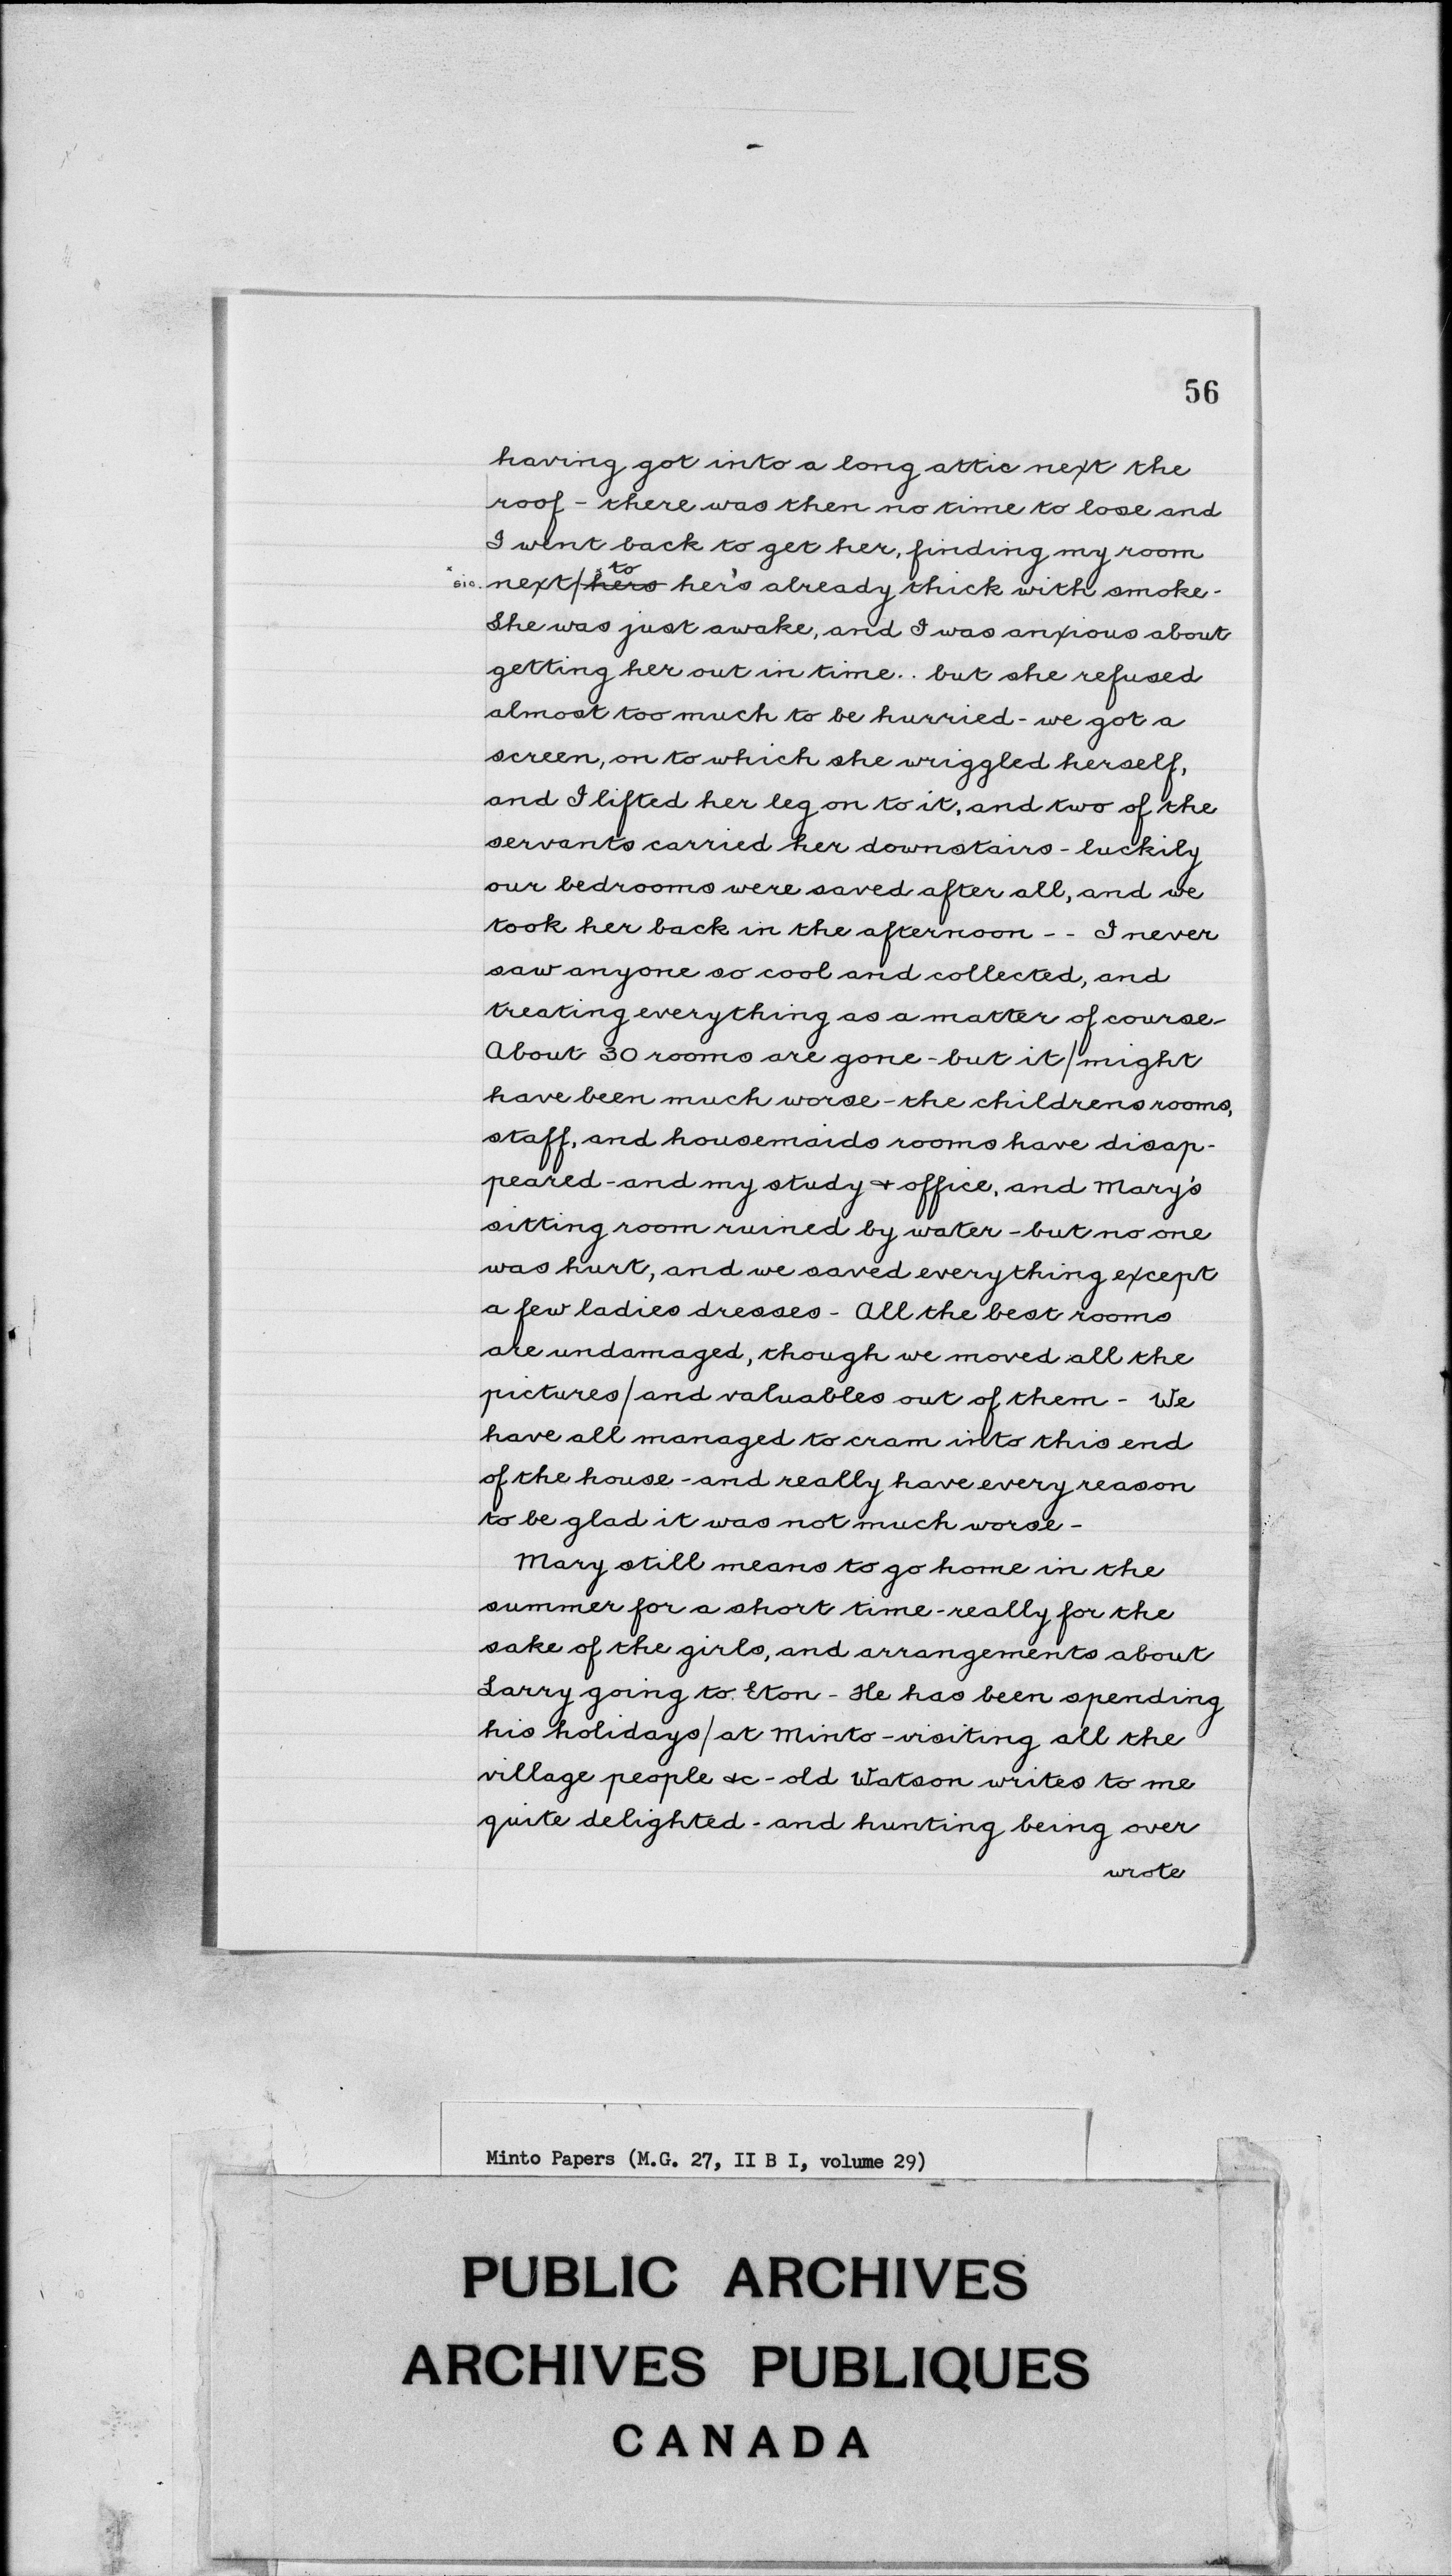 56
having got into a long attic next the
roof - there was then no time to lose and
I went back to get her, finding my room
to
* sic. next/ * hers her's already thick with smoke -
She was just awake, and I was anxious about
getting her out in time.. but she refused
almost too much to be hurried - we got a
screen, on to which she wriggled herself,
and I lifted her leg on to it, and two of the
servants carried her downstairs - luckily
our bedrooms were saved after all, and we
took her back in the afternoon - - I never
saw anyone so cool and collected, and
treating everything as a matter of course -
About 30 rooms are gone - but it/might
have been much worse - the childrens rooms,
staff, and housemaids rooms have disap-
peared - and my study & office, and Mary's
sitting room ruined by water - but no one
was hurt, and we saved everything except
a few ladies dresses - All the best rooms
are undamaged, though we moved all the
pictures/and valuables out of them - We
have all managed to cram into this end
of the house - and really have every reason
to be glad it was not much worse -
Mary still means to go home in the
summer for a short time - really for the
sake of the girls, and arrangements about
Larry going to Eton - He has been spending
his holidays/at Minto - visiting all the
village people &c - old Watson writes to me
quite delighted - and hunting being over
wrote
Minto Papers (M.G. 27, II B I, volume 29)
PUBLIC ARCHIVES
ARCHIVES PUBLIQUES
CANADA